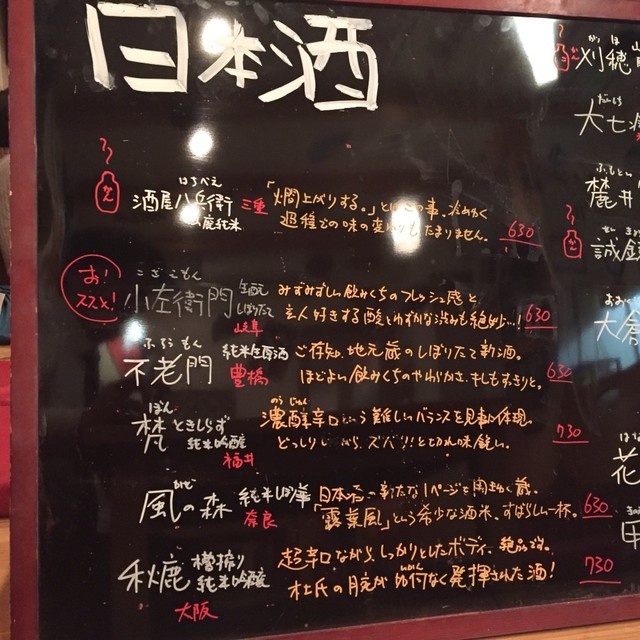 日本酒
はちべえ
酒屋八兵衛 三重
山廃純米
「燗上がりする。」とはこの事。冷めゆく
過程での味の変わりもたまりません。
630
お!
ススメ!
こざえもん
小左衛門
生酛
しぼりたて
岐阜
みずみずしい飲みくちのフレッシュ感と
玄人好きする酸とわずかな渋みも絶妙…!
630
ふろうもん
不老門 純米生原酒
豊橋
ご存知、地元蔵のしぼりたて新酒。
ほどよい飲みくちのやわらかさ、キレもすっきりと。
630
ぼん
梵 ときしらず
純米吟醸
福井
のうじゅん
濃醇辛口という難しいバランスを見事に体現。
どっしりしながら、ズバリ!と切れ味鋭い。
730
かぜ
風の森 純米しぼり華
奈良
日本酒の新たな1ページを開きゆく蔵。
「露葉風」という希少な酒米。すばらしい一杯。
630
秋鹿 槽搾り
純米吟醸
大阪
超辛口ながら、しっかりとしたボディ、絶品です。
杜氏の腕がいかんなく発揮された酒!
730
かりほ
刈穂
だいしち
大七
ふもとい
麓井
誠鏡
大倉
花